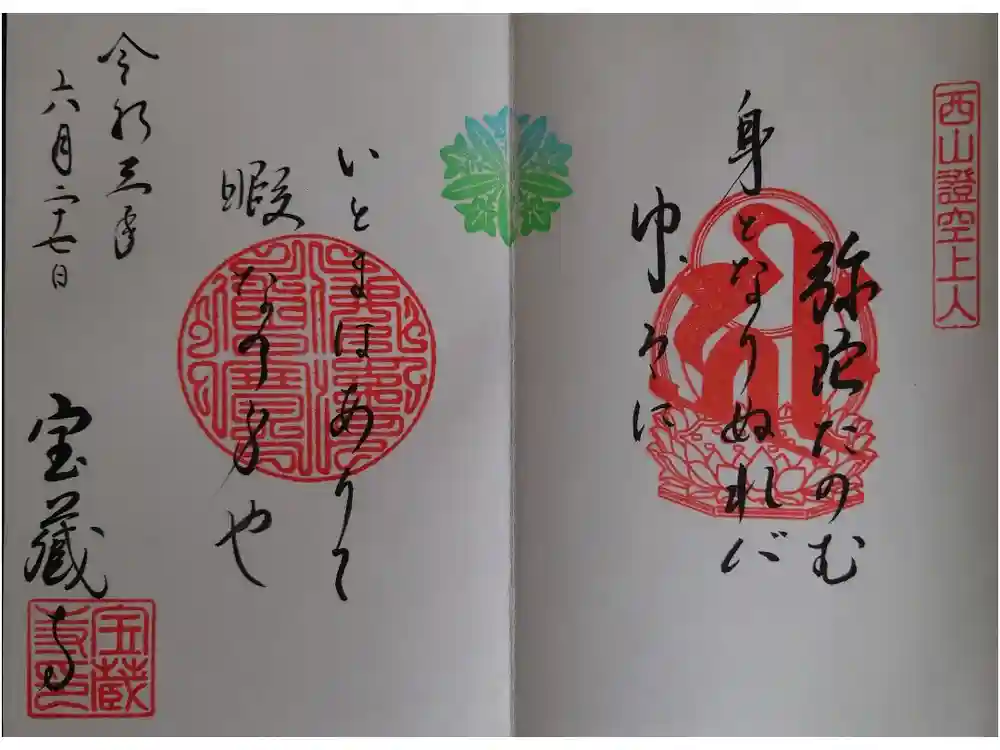 西山證空上人
弥陀たのむ
身となりぬれば
中々に
いとまはありて
暇な身や
令和三年
六月二十七日
宝蔵寺
宝蔵寺印